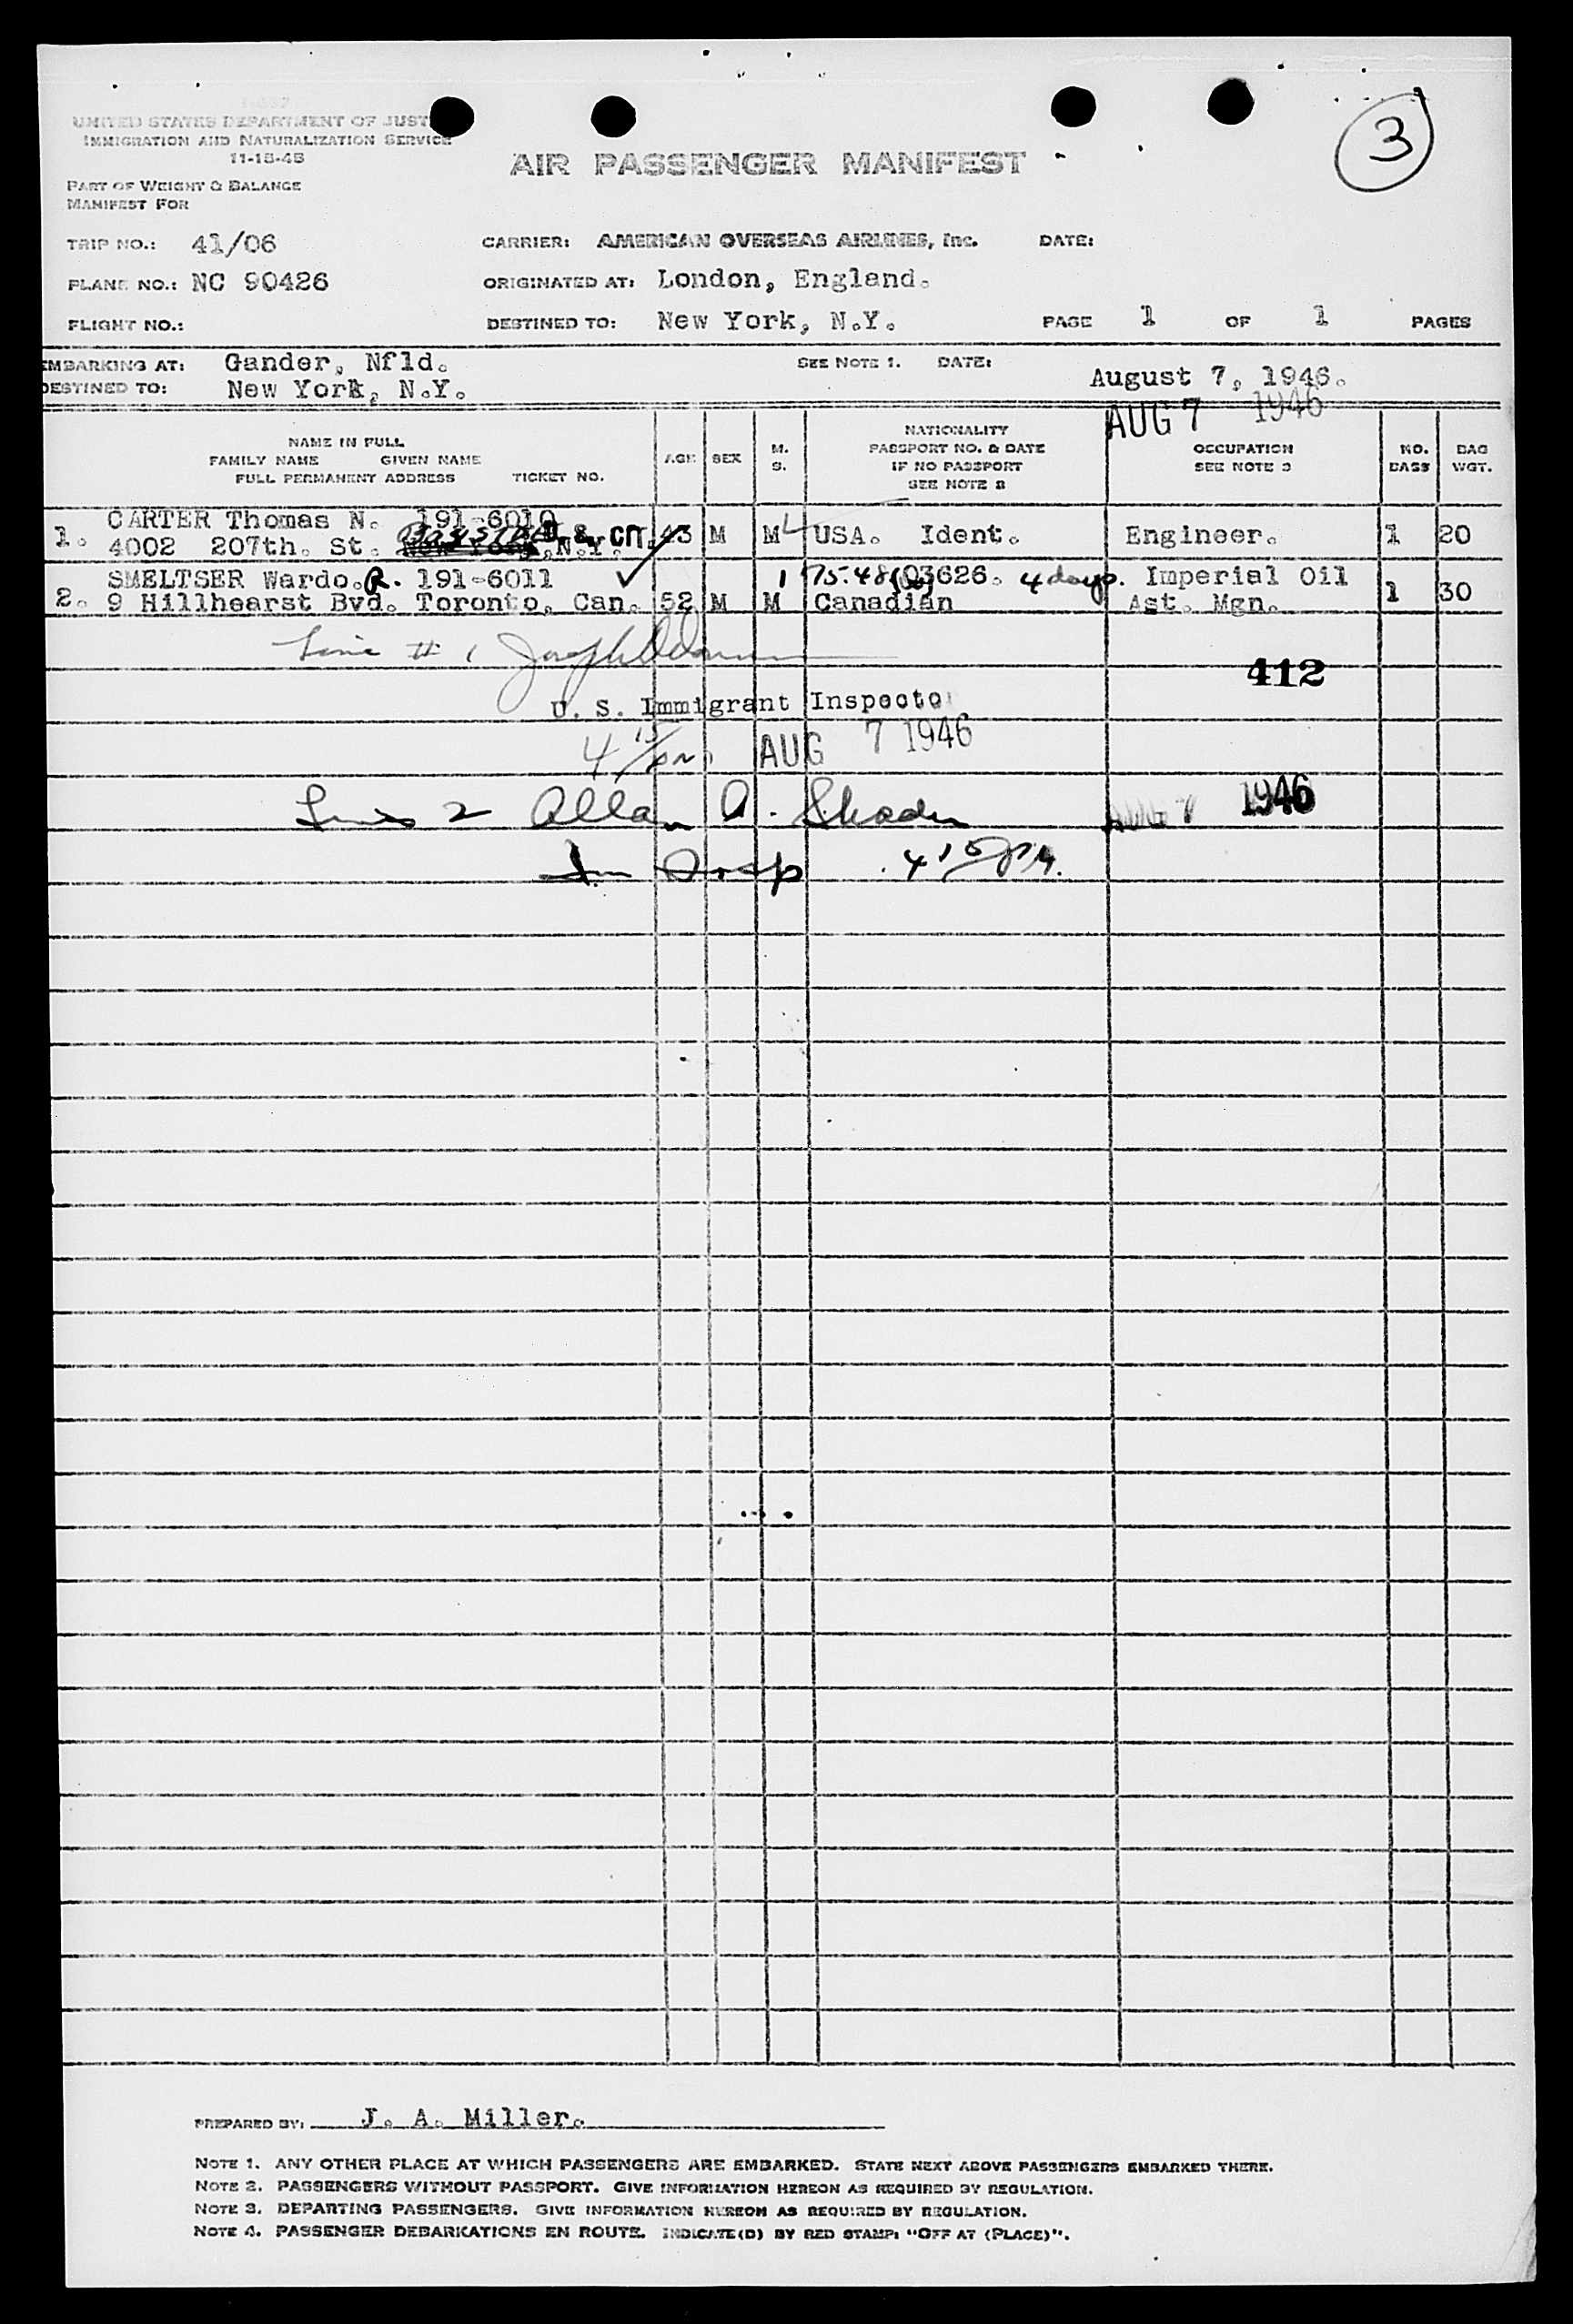 3
UNITED STATES DEPARTMENT OF JUST
IMMIGRATION AND NATURALIZATION SERVICE
11-18-45
AIR PASSENGER MANIFEST
PART OF WEIGHT & BALANCE
MANIFEST FOR
TRIP NO.: 41/06 CARRIER: AMERICAN OVERSEAS AIRLINES, Inc. DATE:
PLANE NO.: NC 90426 ORIGINATED AT: London, England.
FLIGHT NO.: DESTINED TO: New York, N.Y. PAGE 1 OF 1 PAGES
EMBARKING AT: Gander, Nfld. SEE NOTE 1. DATE: August 7, 1946.
DESTINED TO: New York, N.Y.
AUG 7 1946
NAME IN FULL
FAMILY NAME GIVEN NAME
FULL PERMANENT ADDRESS TICKET NO.
AGE SEX M. S.
NATIONALITY
PASSPORT NO. & DATE
IF NO PASSPORT
SEE NOTE 2
OCCUPATION
SEE NOTE 3
NO. BAGS BAG WGT.
CARTER Thomas N. 191-6010
1. 4002 207th. St. Bayside New York, N.Y. 43 M M USA. Ident. Engineer. 1 20
SMELTSER Wardo. R. 191-6011 03626. 4 days. Imperial Oil
2. 9 Hillhearst Bvd. Toronto, Can. 52 M M Canadian Ast. Mgn. 1 30
Line # 1 Joseph
412
U. S. Immigrant Inspector
4 15/pm AUG 7 1946
Lines 2 Allan A. AUG 7 1946
Im Insp 4 15 PM.
PREPARED BY: J. A. Miller.
NOTE 1. ANY OTHER PLACE AT WHICH PASSENGERS ARE EMBARKED. STATE NEXT ABOVE PASSENGERS EMBARKED THERE.
NOTE 2. PASSENGERS WITHOUT PASSPORT. GIVE INFORMATION HEREON AS REQUIRED BY REGULATION.
NOTE 3. DEPARTING PASSENGERS. GIVE INFORMATION HEREON AS REQUIRED BY REGULATION.
NOTE 4. PASSENGER DEBARKATIONS EN ROUTE. INDICATE(D) BY RED STAMP: "OFF AT (PLACE)".